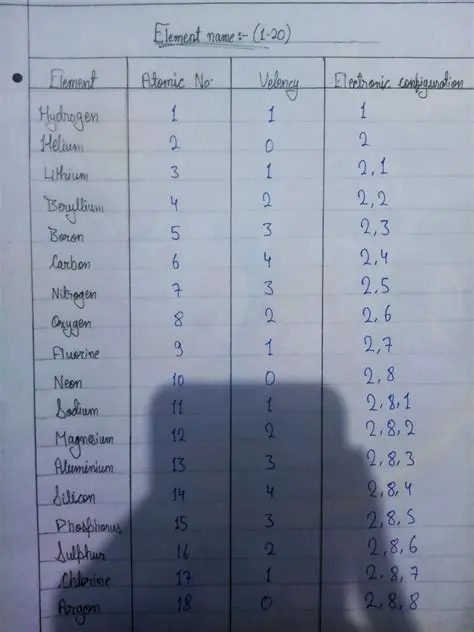 Element name:- (1-20)
Element Atomic No. Velency Electronic configuration
Hydrogen 1 1 1
Helium 2 0 2
Lithium 3 1 2,1
Beryllium 4 2 2,2
Boron 5 3 2,3
Carbon 6 4 2,4
Nitrogen 7 3 2,5
Oxygen 8 2 2,6
Fluorine 9 1 2,7
Neon 10 0 2,8
Sodium 11 1 2,8,1
Magnesium 12 2 2,8,2
Aluminium 13 3 2,8,3
Silicon 14 4 2,8,4
Phosphorus 15 3 2,8,5
Sulphur 16 2 2,8,6
Chlorine 17 1 2,8,7
Argon 18 0 2,8,8